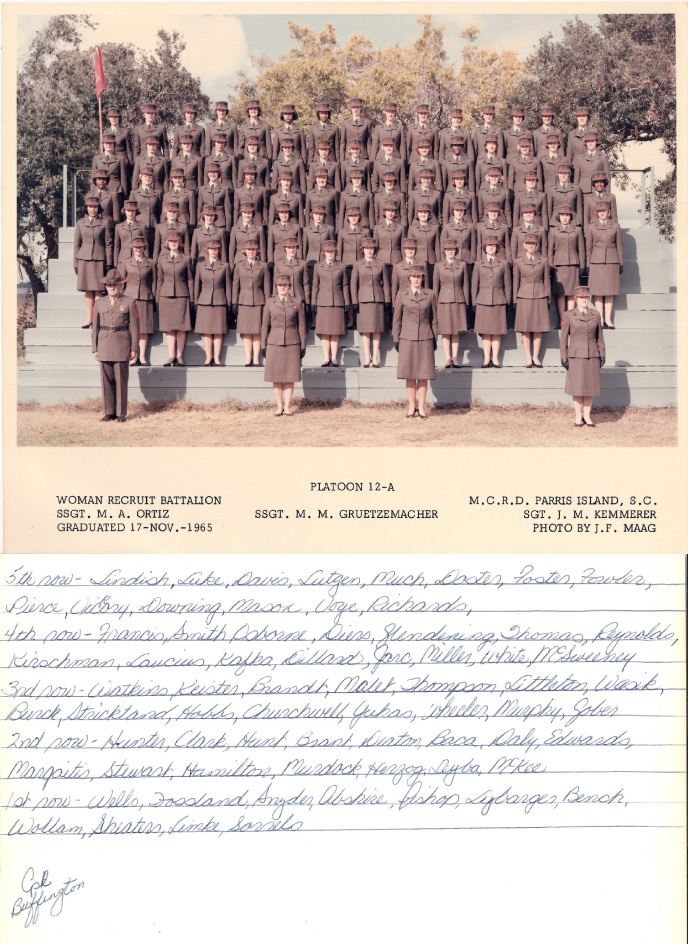 PLATOON 12-A
WOMAN RECRUIT BATTALION
M.C.R.D. PARRIS ISLAND, S.C.
SSGT. M. A. ORTIZ
SSGT. M. M. GRUETZEMACHER
SGT. J. M. KEMMERER
GRADUATED 17-NOV.-1965
PHOTO BY J.F. MAAG
5th row- Lindish, Luke, Davis, Lutgen, Much, Doster, Foster, Fowler,
Pierce, Vickry, Downing, Mason, Voge, Richards,
4th row- Francis, Smith Osborne, Diers, Glendening, Thomas, Reynolds,
Kirschman, Laucius, Kafka, Dillard, Jarc, Miller, White, McSweeney
3rd row- Watkins, Keister, Brandt, Malek, Thompson, Littleton, Wasik,
Burck, Strickland, Hobbs, Churchwell, Yuhas, Wheeler, Murphy, Gober
2nd row- Hunter, Clark, Hunt, Brant, Deaton Baca, Daly, Edwards,
Margaitis, Stewart, Hamilton, Murdock, Herzog, Leyba, McKee
1st row- Wells, Fossland, Snyder, Abshire, Bishop, Lybarger, Bench,
Wollam, Shiaters, Limke, Sorrels
Cpl
Buffington